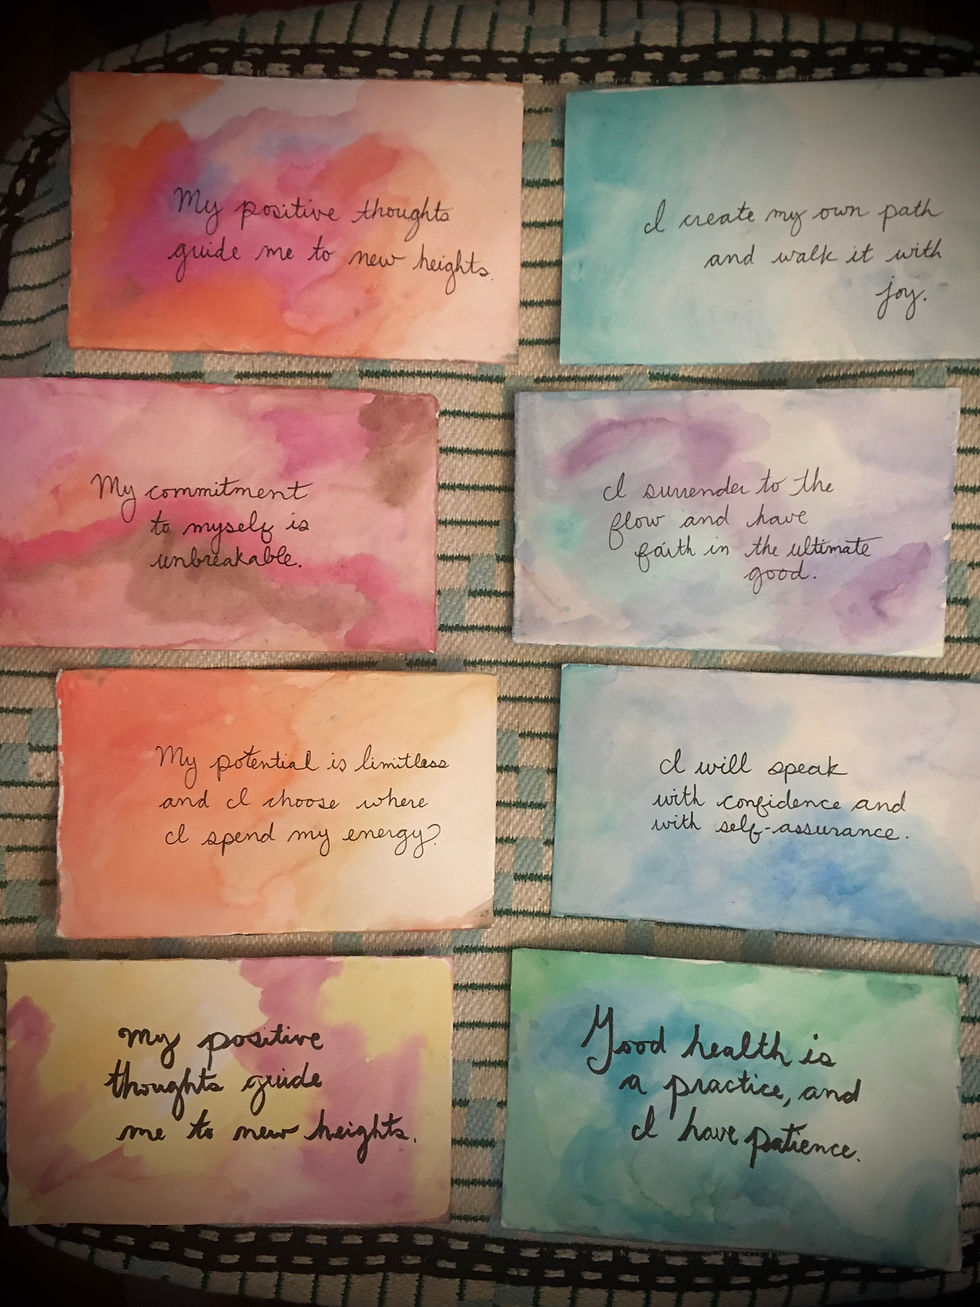 My positive thoughts
guide me to new heights.
I create my own path
and walk it with
joy.
My commitment
to myself is
unbreakable.
I surrender to the
flow and have
faith in the ultimate
good.
My potential is limitless
and I choose where
I spend my energy?
I will speak
with confidence and
with self-assurance.
My positive
thoughts guide
me to new heights.
Good health is
a practice, and
I have patience.